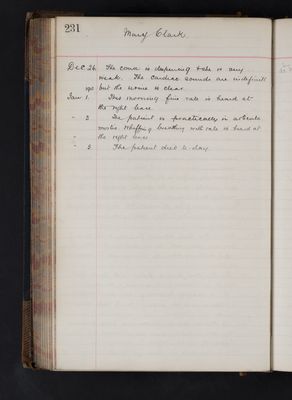 231
Mary Clark.
Dec 26. The coma is deepening & she is very
weak. The cardiac sounds are indefinite
but the urine is clear.
Jan 1. This morning fine rale is heard at
the right base
" 2 The patient is practically in
whiffling breathing with rale is heard at
" the right base
" 3. The patient died to-day.